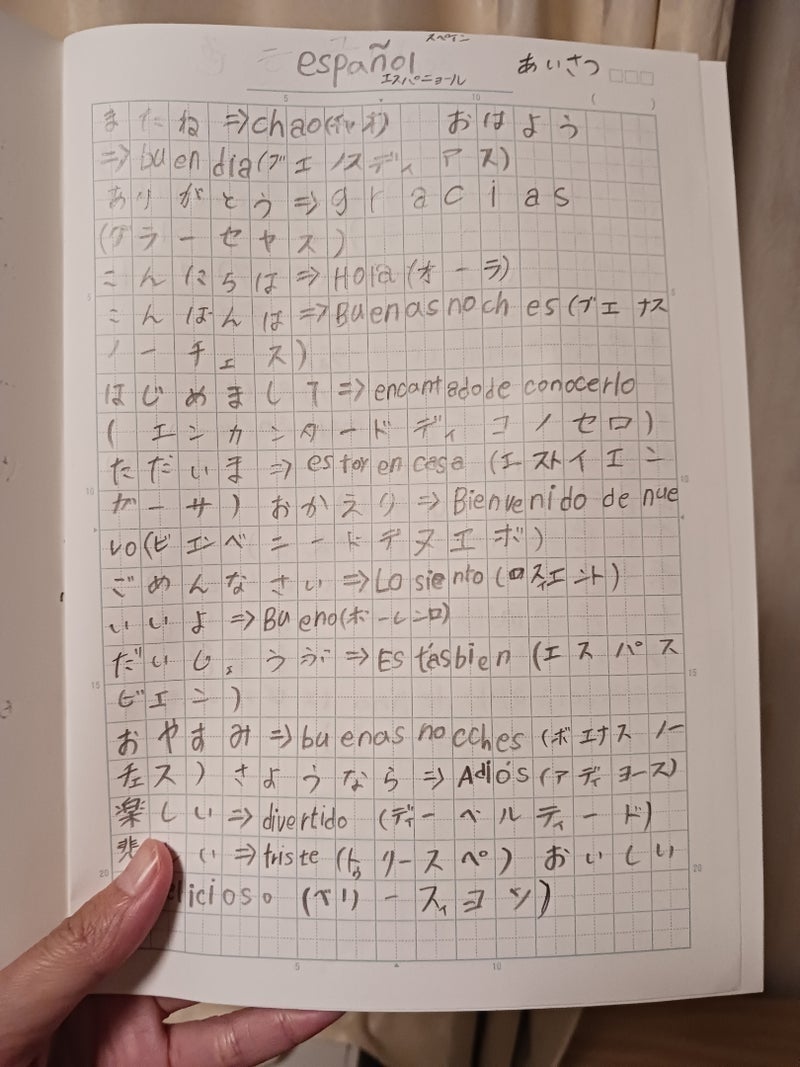 スペイン
español あいさつ
エスパニョール
またね⇒chao(チャオ) おはよう
⇒buen dia(ブエノスディアス)
ありがとう⇒gracias
(グラーセヤス)
こんにちは⇒Hola(オーラ)
こんばんは⇒Buenas noch es(ブエナス
ノーチェス)
はじめまして⇒encantadode conocerlo
(エンカンタードディコノセロ)
ただいま⇒estoy en casa(エストイエン
カーサ)おかえり⇒Bienvenido de nue
vo(ビエンベニードデヌエボ)
ごめんなさい⇒Lo siento(ロスィエント)
いいよ⇒Bueno
だいじょうぶ⇒Estásbien(エスパス
ビエン)
おやすみ⇒buenas nocches(ボエナスノー
チェス)さようなら⇒Adiós(アディヨース)
楽しい⇒divertido(ディーベルティード)
悲 い⇒triste(トゥリースペ)おいしい
elicioso(ベリースィヨソ)